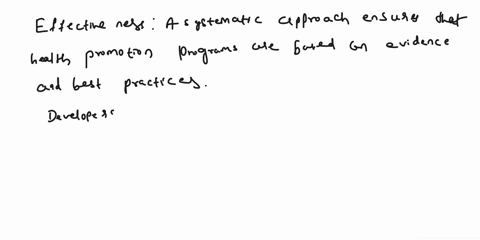 Effectiveness: A systematic approach ensures that
health promotion programs are based on evidence
and best practices.
Develops